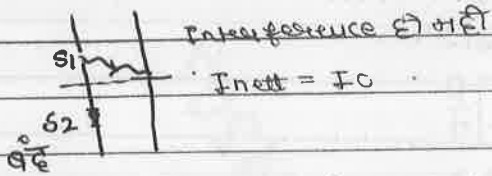 Interference ही नहीं
S1
Inett = I0
S2
बंद